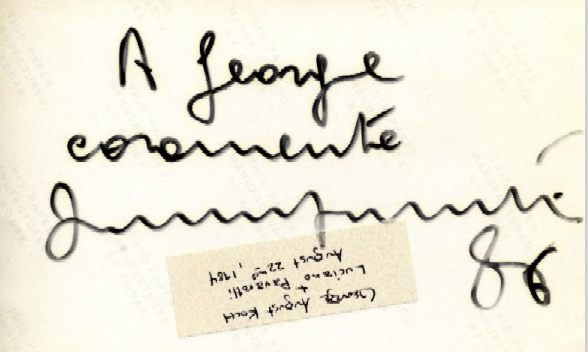 A George
caramente
86
George August Koch
+
Luciano Pavarotti
August 22nd, 1984